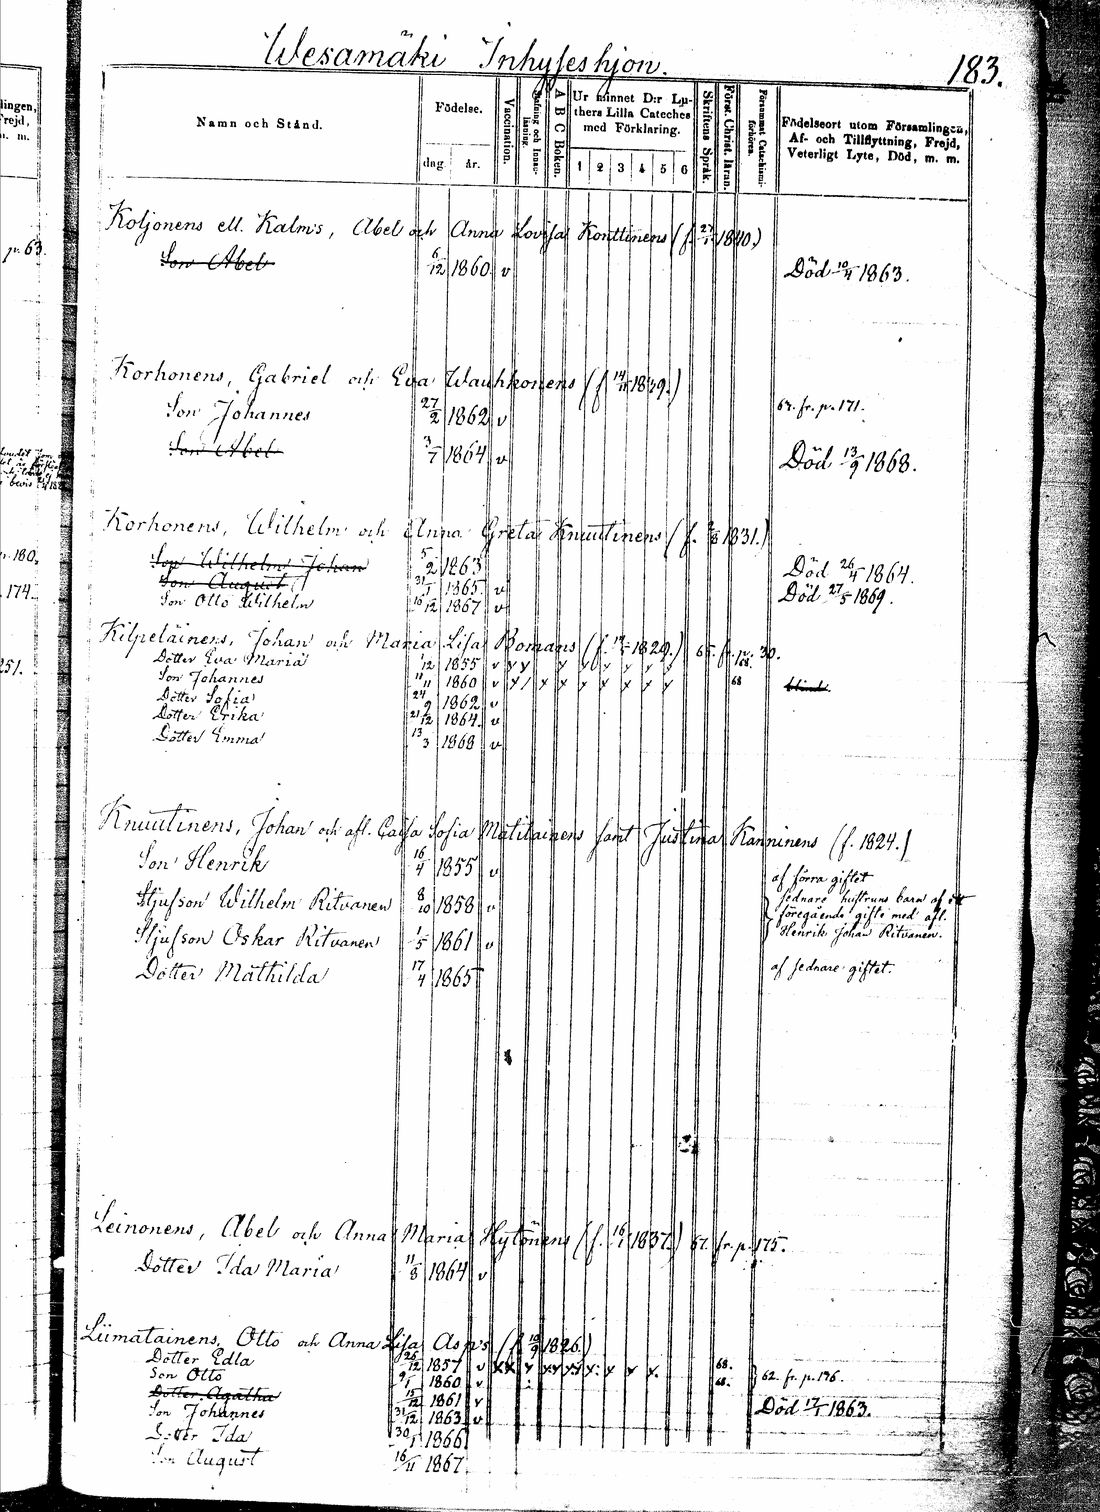 Wesamäki Inhyseshjon.
183.
Namn och Stånd.
Födelse.
dag. år.
Vaccination.
A B C Boken.
Ur minnet D:r Lu-
thers Lilla Cateches
med Förklaring.
1 2 3 4 5 6
Skriftens Språk.
Först. Christ. läran.
Försummat Catechismi-
förhören.
Födelseort utom Församlingen,
Af- och Tillflyttning, Frejd,
Veterligt Lyte, Död, m. m.
Koljonens ell. Kalm's, Abel och Anna Lovisa Konttinens (f. 27/1 1840.)
Son Abel 6/12 1860. v Död 10/4 1863.
Korhonens, Gabriel och Eva Wauhkonens (f. 1839.)
Son Johannes 27/2 1862 v 67. fr. p. 171.
Son Abel 3/7 1864 v Död 13/9 1868.
Korhonens, Wilhelm och Anna Greta Knuutinens (f. 1831.)
Son Wilhelm Johan 5/2 1863 Död 26/4 1864.
Son August 31/1 1865. v Död 27/5 1869.
Son Otto Wilhelm 10/12 1867 v
Kilpeläinens, Johan och Maria Lisa Bomans (f. 1829.) fr. p. 30.
Dotter Eva Maria 1/12 1855 v
Son Johannes 11/11 1860 v 68
Dotter Sofia 24/9 1862 v
Dotter Erika 21/12 1864. v
Dotter Emma 13/3 1868 v
Knuutinens, Johan och afl. Caisa Sofia Matilainens samt Justina Kanninens (f. 1824.)
Son Henrik 16/4 1855 v af förra giftet
Stjufson Wilhelm Ritvanen 8/10 1858 v sednare hustruns barn af ett
föregående gifte med afl.
Stjufson Oskar Ritvanen 1/5 1861 v Henrik Johan Ritvanen.
Dotter Mathilda 17/4 1865 af sednare giftet.
Leinonens, Abel och Anna Maria Hytönens (f. 16/1 1837.) 67. fr. p. 175.
Dotter Ida Maria 11/8 1864 v
Liimatainens, Otto och Anna Lisa Asp's (f. 10/9 1826.)
Dotter Edla 26/12 1857 v 68.
Son Otto 9/1 1860 v 68. 62. fr. p. 196.
Dotter Agatha 15/12 1861 v Död 17/1 1863.
Son Johannes 31/12 1863 v
Dotter Ida 30/1 1866
Son August 16/11 1867.